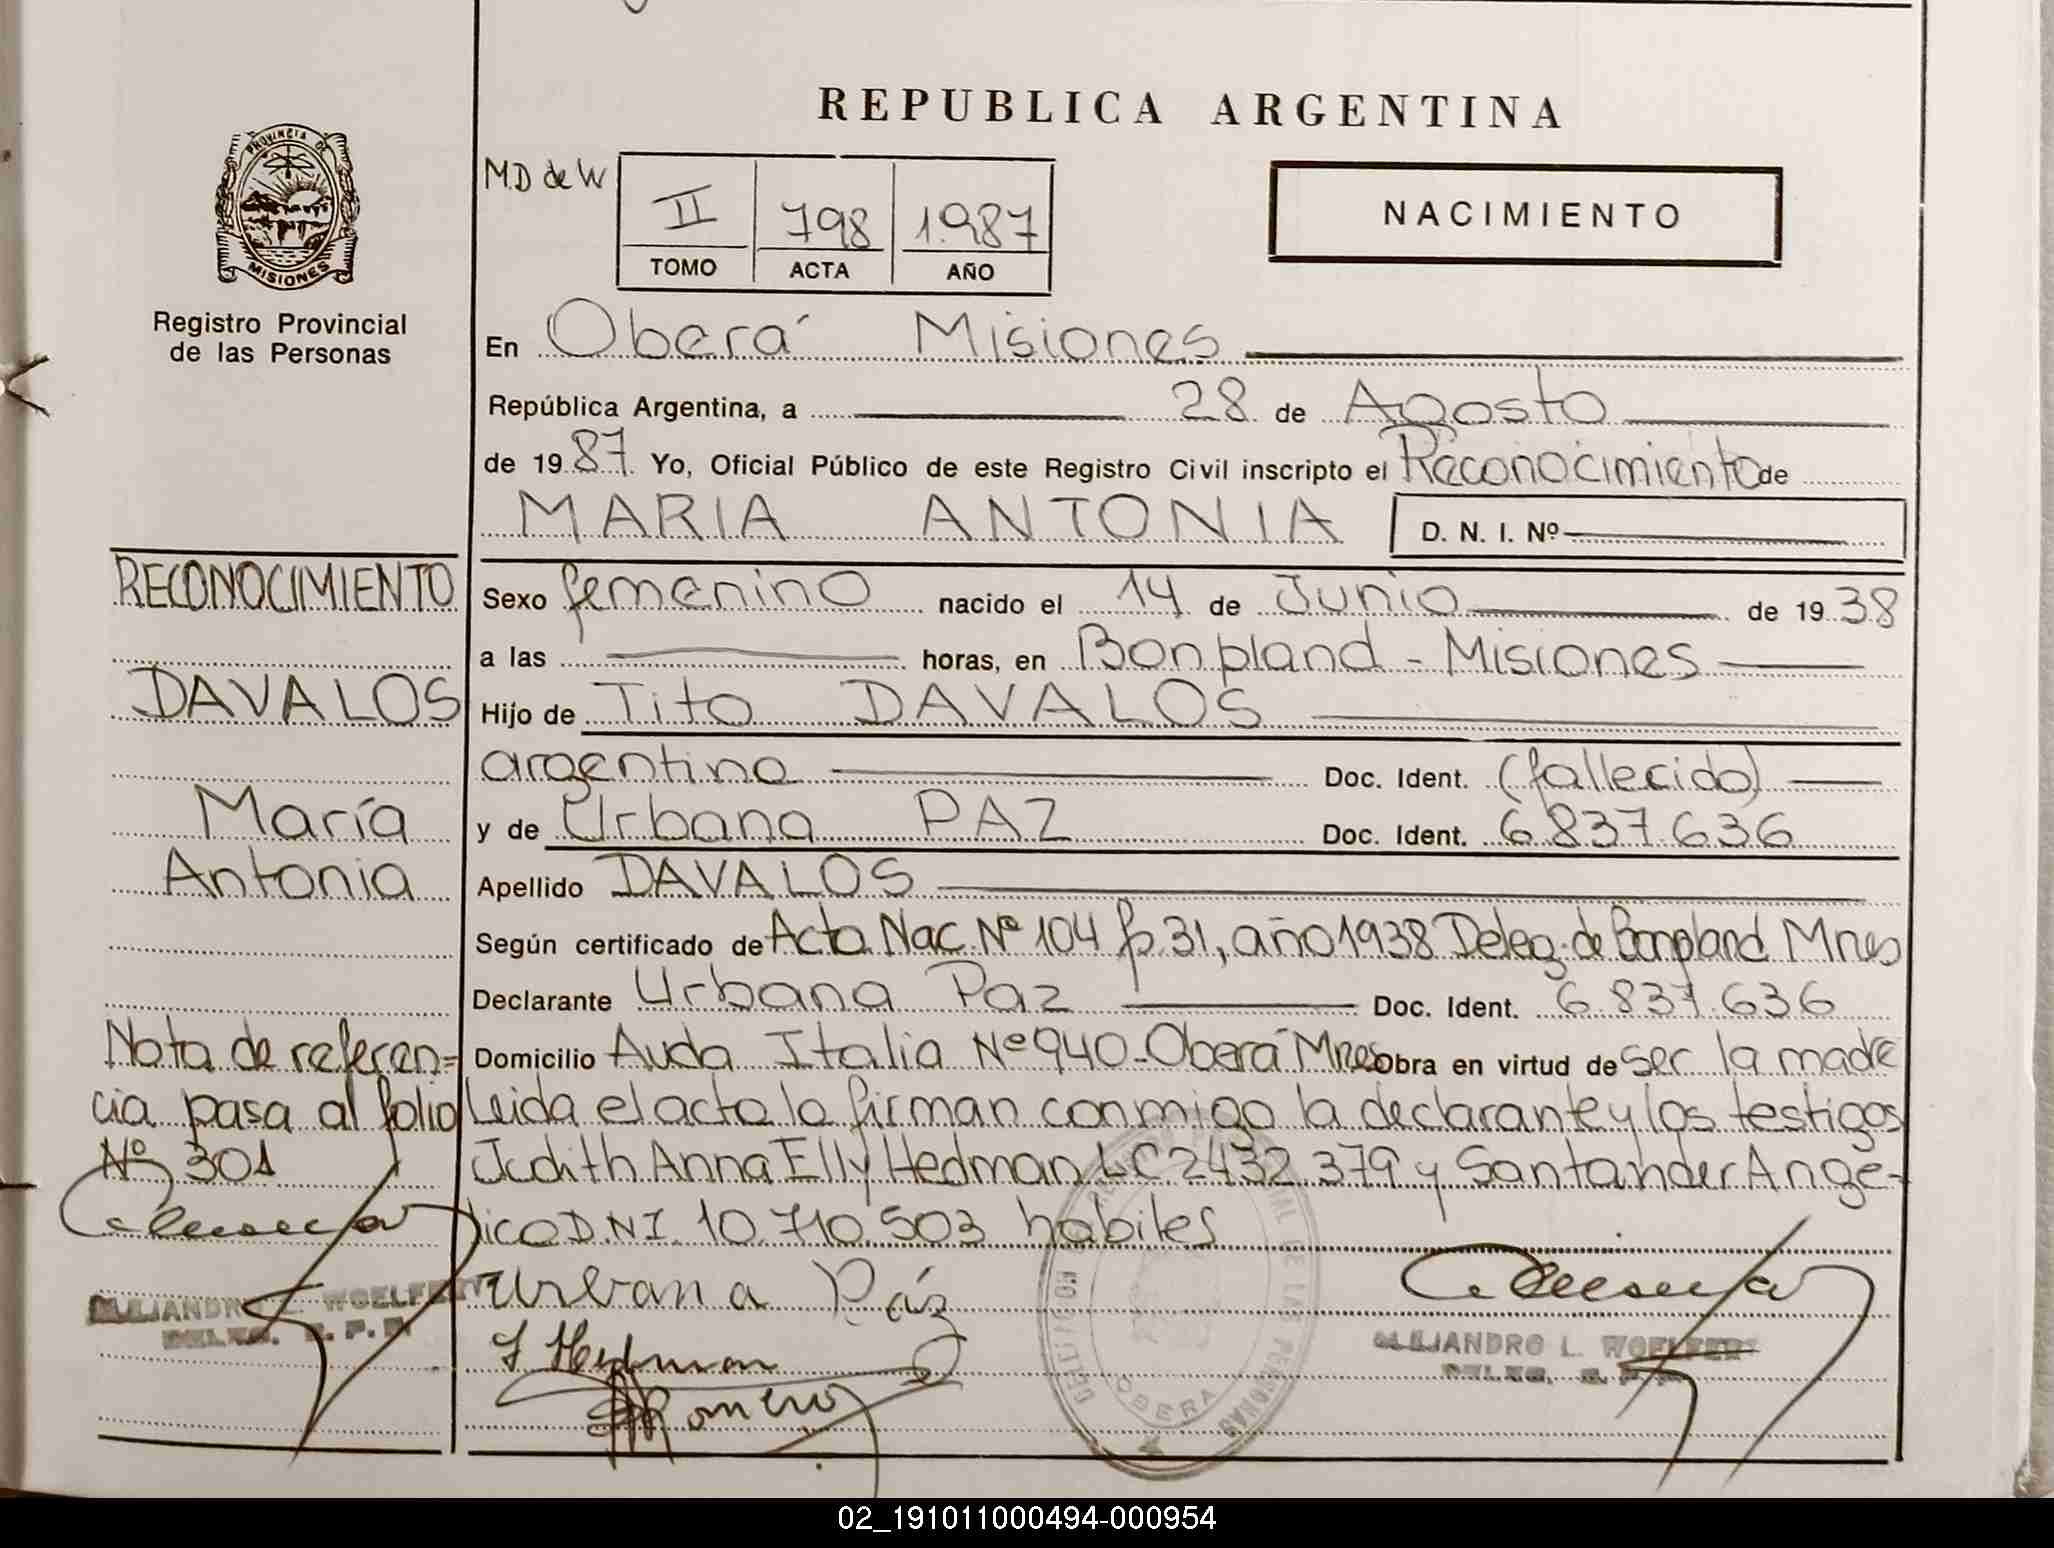 REPUBLICA ARGENTINA
PROVINCIA DE
MISIONES
Registro Provincial
de las Personas
M.D de W
II 798 1.987
TOMO ACTA AÑO
NACIMIENTO
En Oberá Misiones
República Argentina, a 28 de Agosto
de 1987. Yo, Oficial Público de este Registro Civil inscripto el Reconocimiento de
MARIA ANTONIA D. N. I. Nº
Sexo femenino nacido el 14 de Junio de 1938
a las horas, en Bonpland - Misiones
Hijo de Tito DAVALOS
argentino Doc. Ident. (fallecido)
y de Urbana PAZ Doc. Ident. 6.837.636
Apellido DAVALOS
Según certificado de Acta Nac. Nº 104 fº 31, año 1938 Deleg. de Bonpland Mnes
Declarante Urbana Paz Doc. Ident. 6.837.636
Domicilio Avda Italia Nº 940 - Oberá Mnes Obra en virtud de ser la madre
Leida el acta la firman conmigo la declarante y los testigos
Judith Anna Elly Hedman L.C 2432.379 y Santander Ange-
lico D.N.I. 10.710.503 habiles
Urbana Páz
J Hedman
Romero
ALEJANDRO L. WOELFERT
DELEG. R. P. P.
REGISTRO PROVINCIAL DE LAS PERSONAS
DELEGACION
OBERA
RECONOCIMIENTO
DAVALOS
María
Antonia
Nota de referen=
cia pasa al folio
Nº 301
ALEJANDRO L. WOELFERT
DELEG. R. P. P.
02_191011000494-000954